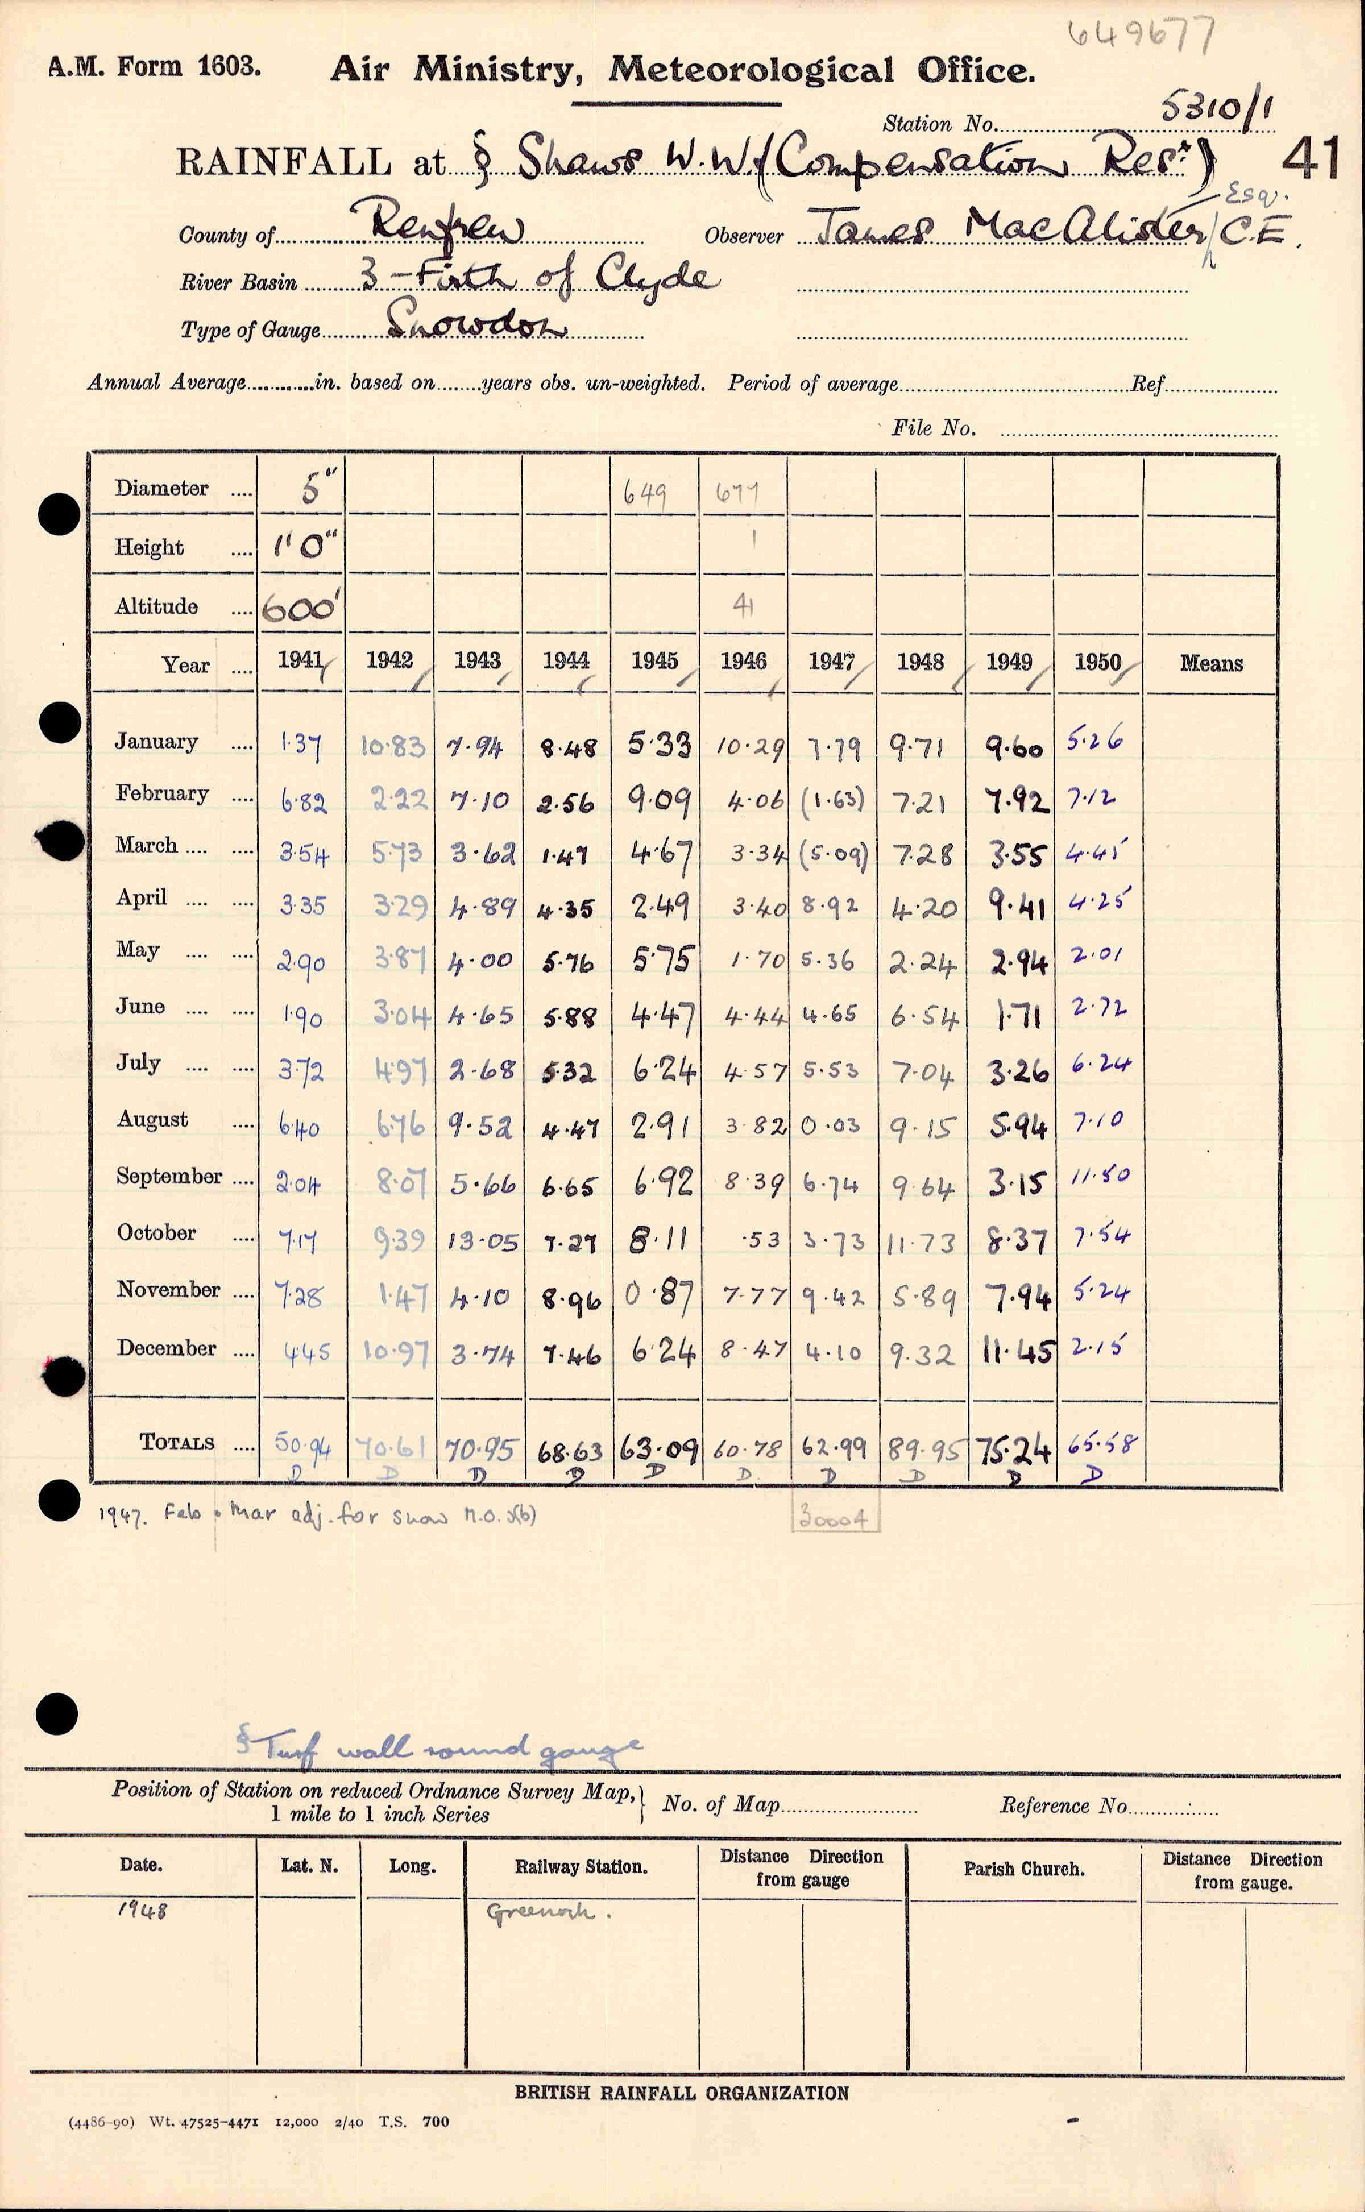 649677
A.M. Form 1603. Air Ministry, Meteorological Office.
Station No. 5310/1
RAINFALL at § Shaws W.W. (Compensation Resr.) 41
County of Renfrew Observer James MacAlister, Esq. C.E.
River Basin 3 - Firth of Clyde
Type of Gauge Snowdon
Annual Average in. based on years obs. un-weighted. Period of average Ref
File No.
Diameter .... 5" 649 677
Height .... 1'0" 1
Altitude .... 600' 41
Year .... 1941 1942 1943 1944 1945 1946 1947 1948 1949 1950 Means
January .... 1.37 10.83 7.94 8.48 5.33 10.29 7.79 9.71 9.60 5.26
February .... 6.82 2.22 7.10 2.56 9.09 4.06 (1.63) 7.21 7.92 7.12
March .... .... 3.54 5.73 3.62 1.47 4.67 3.34 (5.09) 7.28 3.55 4.45
April .... .... 3.35 3.29 4.89 4.35 2.49 3.40 8.92 4.20 9.41 4.25
May .... .... 2.90 3.87 4.00 5.76 5.75 1.70 5.36 2.24 2.94 2.01
June .... .... 1.90 3.04 4.65 5.88 4.47 4.44 4.65 6.54 1.71 2.72
July .... .... 3.72 4.97 2.68 5.32 6.24 4.57 5.53 7.04 3.26 6.24
August .... 6.40 6.76 9.52 4.47 2.91 3.82 0.03 9.15 5.94 7.10
September .... 2.04 8.07 5.66 6.65 6.92 8.39 6.74 9.64 3.15 11.50
October .... 7.17 9.39 13.05 7.27 8.11 .53 3.73 11.73 8.37 7.54
November .... 7.28 1.47 4.10 8.96 0.87 7.77 9.42 5.89 7.94 5.24
December .... 4.45 10.97 3.74 7.46 6.24 8.47 4.10 9.32 11.45 2.15
TOTALS .... 50.94 70.61 70.95 68.63 63.09 60.78 62.99 89.95 75.24 65.58
D D D D D D D D D D
1947. Feb & Mar adj. for snow M.O. 3(b) 30004
§ Turf wall round gauge
Position of Station on reduced Ordnance Survey Map, 1 mile to 1 inch Series } No. of Map Reference No.
Date. Lat. N. Long. Railway Station. Distance Direction from gauge Parish Church. Distance Direction from gauge.
1948 Greenock.
BRITISH RAINFALL ORGANIZATION
(4486-90) Wt. 47525-4471 12,000 2/40 T.S. 700